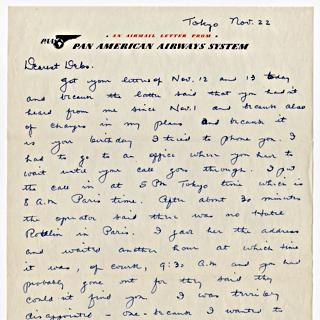 Tokyo Nov. 22
AN AIRMAIL LETTER FROM
PAA
PAN AMERICAN AIRWAYS SYSTEM
Dearest Debs.
Got your letters of Nov. 12 and 13 today
and because the latter said that you hadn't
heard from me since Nov. 1 and because also
of changes in my plans and because it
is your birthday I tried to phone you. I
had to go to an office where you have to
wait until your call goes through. I put
the call in at 5 PM Tokyo time which is
8 A.M Paris time. After about 30 minutes
the operator said there was no Hotel
in Paris. I gave her the address
and waited another hour at which time
it was, of course, 9:30 A.M and you had
probably gone out for they said they
could not find you. I was terribly
disappointed - one - because I wanted to